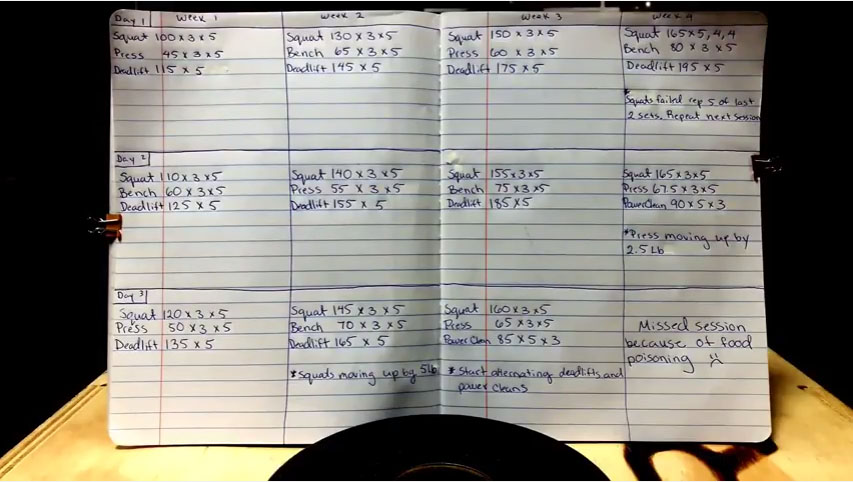 Day 1 Week 1 Week 2 Week 3 Week 4
Squat 100 x 3 x 5
Press 45 x 3 x 5
Deadlift 115 x 5
Squat 130 x 3 x 5
Bench 65 x 3 x 5
Deadlift 145 x 5
Squat 150 x 3 x 5
Press 60 x 3 x 5
Deadlift 175 x 5
Squat 165 x 5, 4, 4
Bench 80 x 3 x 5
Deadlift 195 x 5
*Squats failed rep 5 of last
2 sets. Repeat next session
Day 2
Squat 110 x 3 x 5
Bench 60 x 3 x 5
Deadlift 125 x 5
Squat 140 x 3 x 5
Press 55 x 3 x 5
Deadlift 155 x 5
Squat 155 x 3 x 5
Bench 75 x 3 x 5
Deadlift 185 x 5
Squat 165 x 3 x 5
Press 67.5 x 3 x 5
PowerClean 90 x 5 x 3
*Press moving up by
2.5 Lb
Day 3
Squat 120 x 3 x 5
Press 50 x 3 x 5
Deadlift 135 x 5
Squat 145 x 3 x 5
Bench 70 x 3 x 5
Deadlift 165 x 5
*Squads moving up by 5lb
Squat 160 x 3 x 5
Press 65 x 3 x 5
PowerClean 85 x 5 x 3
* Start alternating deadlifts and
power cleans
Missed session
because of food
poisoning